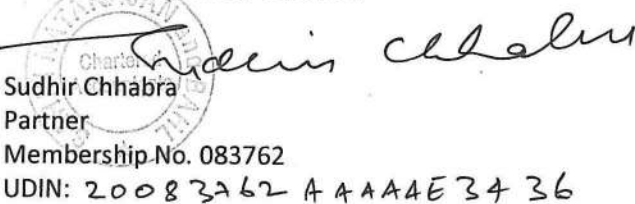 Sudhir Chhabra
Sudhir Chhabra
Partner
Membership No. 083762
UDIN: 20083762 AAAAAE3436